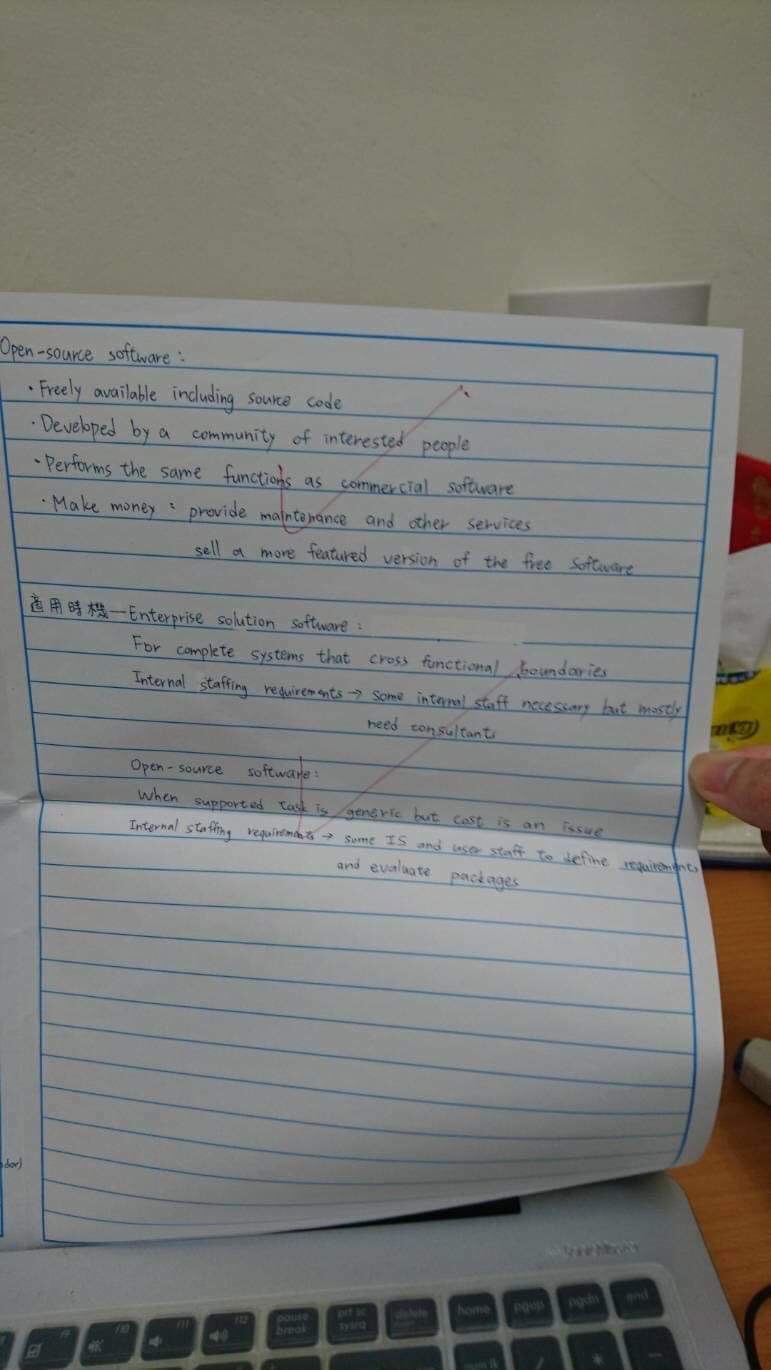 Open-source software:
・Freely available including source code
・Developed by a community of interested people
・Performs the same functions as commercial software
・Make money: provide maintenance and other services
sell a more featured version of the free software
適用時機—Enterprise solution software:
For complete systems that cross functional boundaries
Internal staffing requirements → some internal staff necessary but mostly
need consultants
Open-source software:
When supported task is generic but cost is an issue
Internal staffing requirements → some IS and user staff to define requirements
and evaluate packages
dor)
f9
f10
f11
f12
pause
break
prt sc
sysrq
delete
home
pgup
pgdn
end